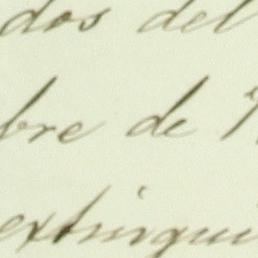 dos del
bre de
extingui